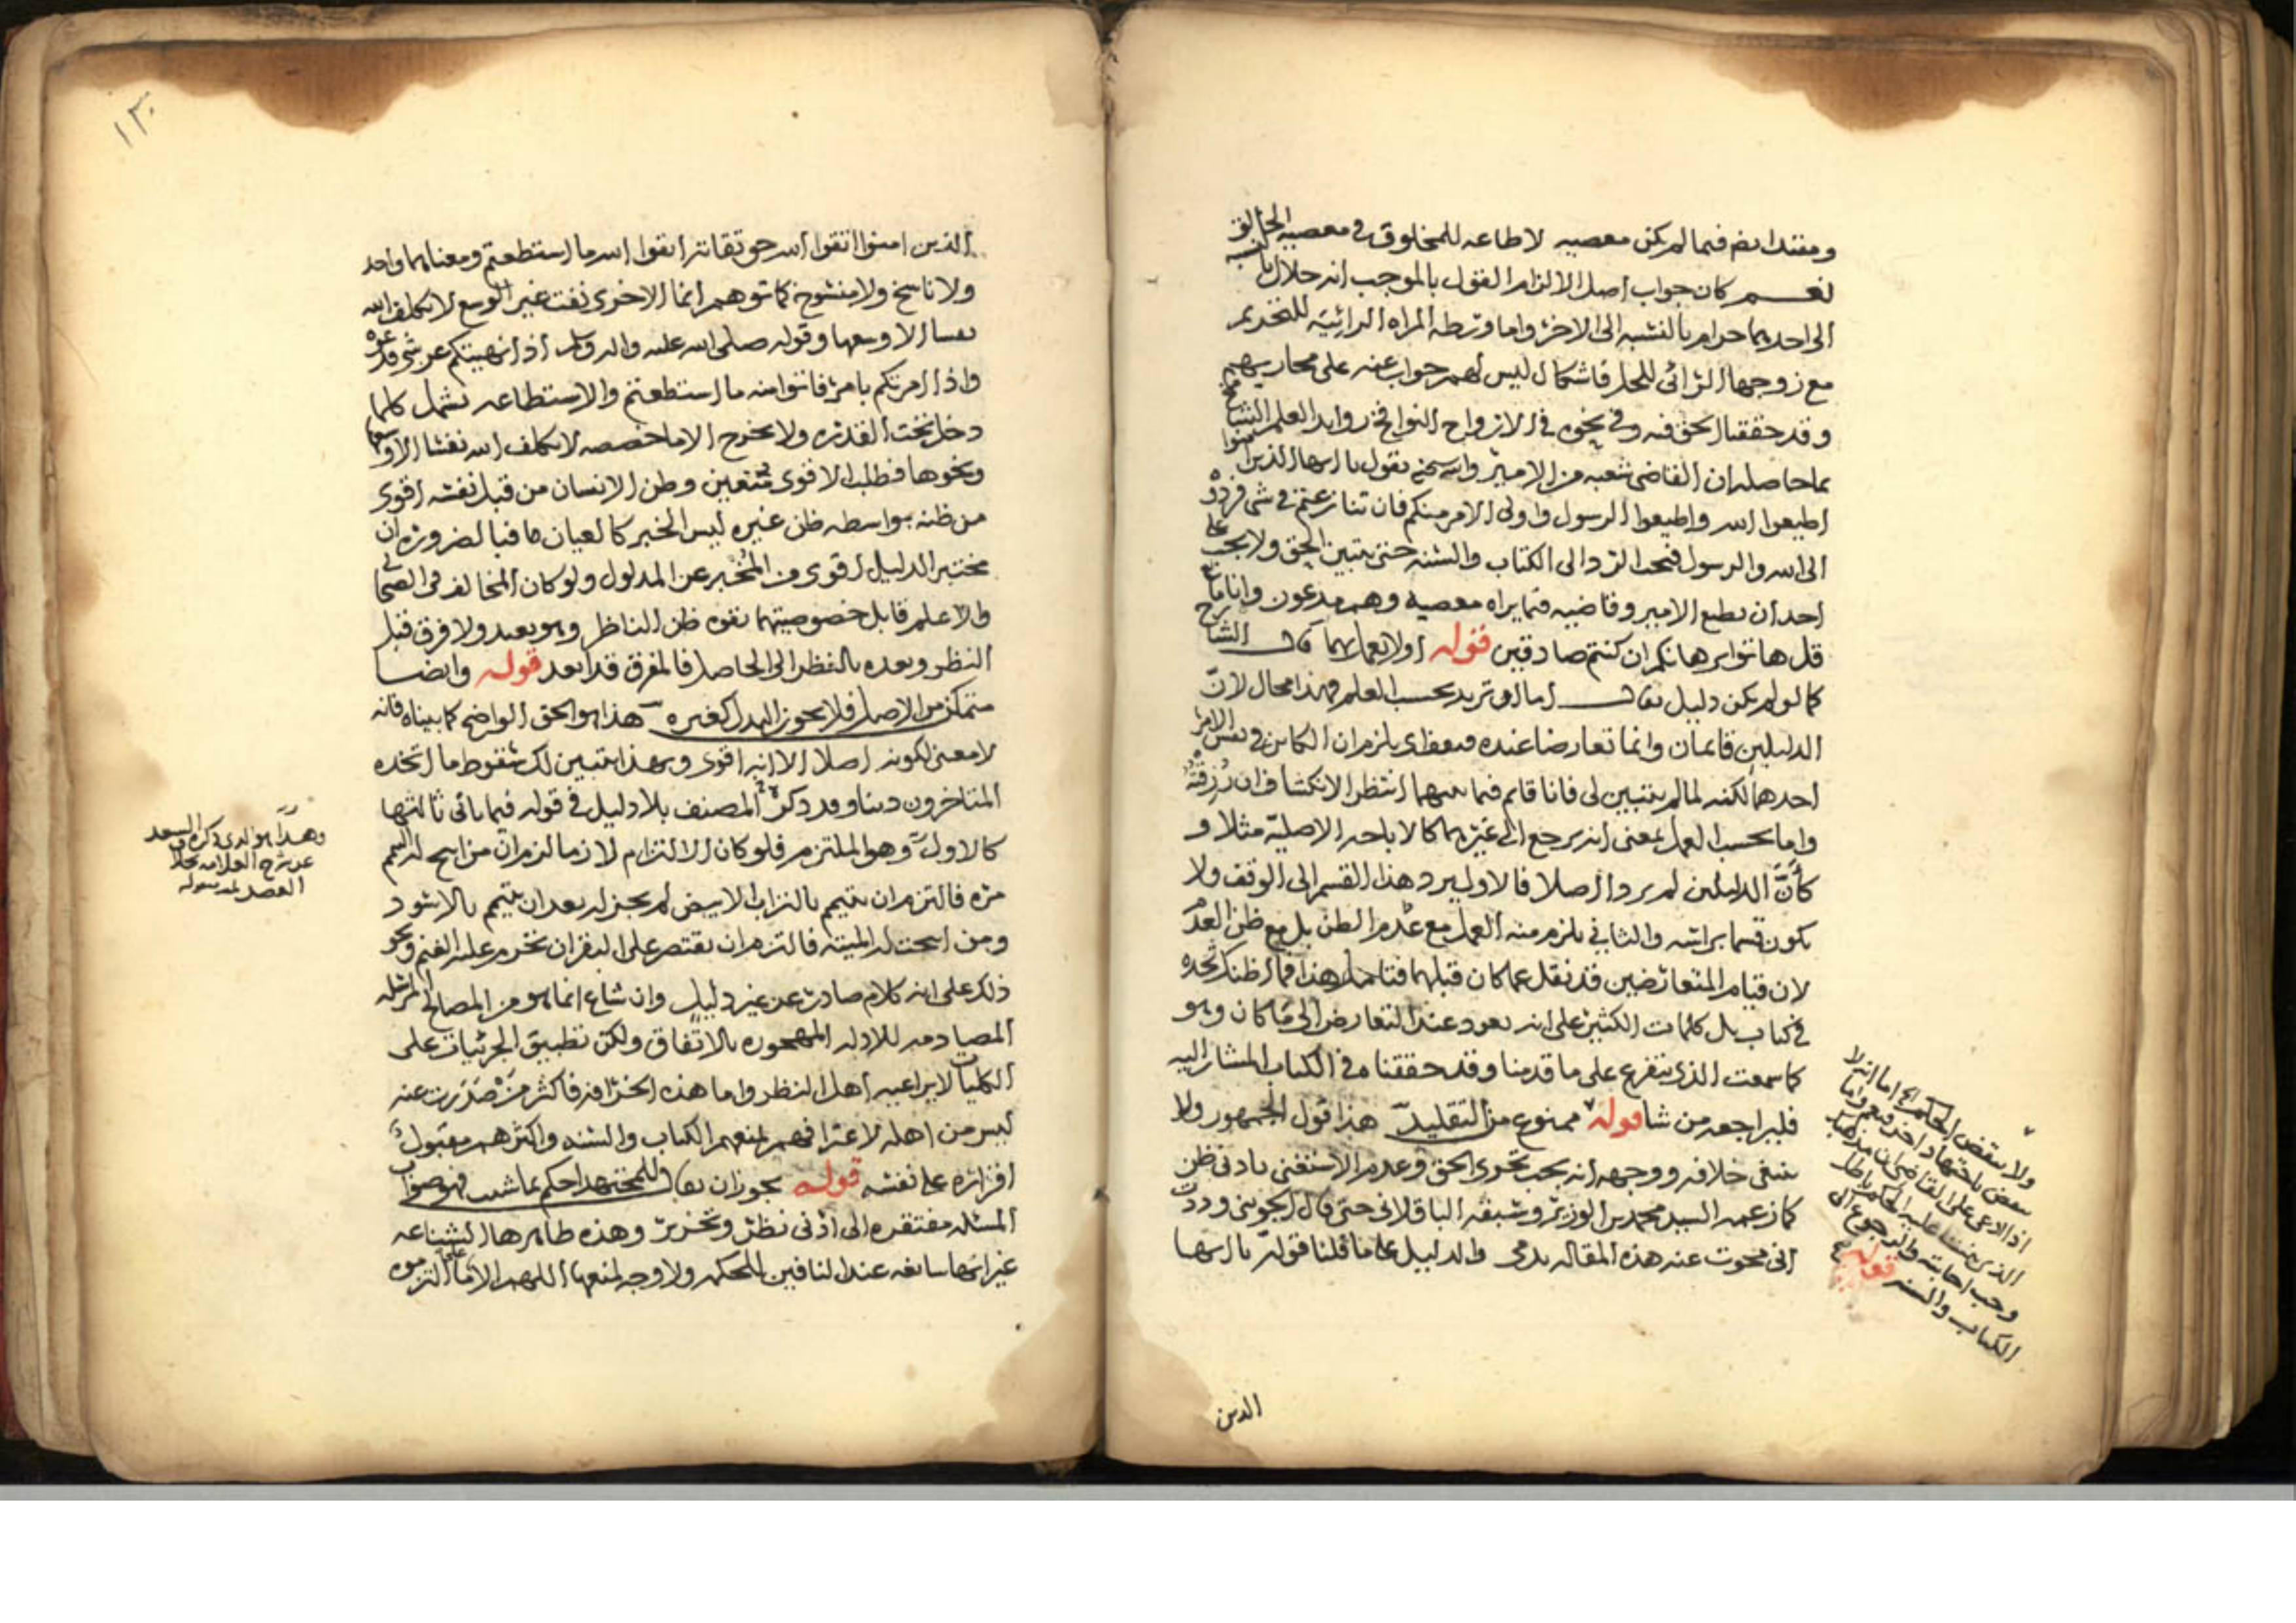 ومفتدا بضم فيما لم يكن معصيه لا طاعه للمخلوق في معصيه الخالق
نعم كان جواب اصل الالزام القول بالموجب انه حلال بالنسبه
الى احدهما حرام بالنسبه الى الاخر واما ورطه المراه الرائية للتحريم
مع زوجها الرائي للحل فاشكال ليس لهم جواب عنه على محاربهم
وقد حققنا الحق فيه وفي نحوه في الارواح النوافخ زوايد العلم الشامخ
بما حاصله ان القاضي شعبه من الامير والله سبحنه يقول يا ايها الذين امنوا
اطيعوا الله واطيعوا الرسول واولي الامر منكم فان تنازعتم في شي فردوه
الى الله والرسول فيجب الرد الى الكتاب والسنه حتى يتبين الحق ولا يجب على
احد ان يطيع الامير وقاضيه فيما يراه معصيه وهم مدعون وانا مانع
قل هاتوا برهانكم ان كنتم صادقين قوله اولا يعمل بهما قال الشارح
كما لو لم يكن دليل يقال اما ان تريد بحسب العلم فهذا محال لان
الدليلين قائمان وانما تعارضا عنده فيعتقد يلزم ان الكاين في نفس الامر
احدهما لكنه لما لم يتبين لي فانا قايم فيما بينهما انتظر الانكشاف ان رزقته
واما بحسب العمل بمعنى انه يرجع الى غيرهما كالاباحه الاصلية مثلا و
كأنّ الدليلين لم يردا اصلا فالاول يرد هذا القسم الى الوقف ولا
يكون قسما براسه والثاني يلزم منه العمل مع عدم الظن بل مع ظن العدم
لان قيام المتعارضين قد نقل عما كان قبلهما فتامل هذا فما اظنك تجده
في كتاب بل كلمات الكثير على انه يعود عند التعارض الى ما كان وهو
كما سمعت الذي يتفرع على ما قدمنا وقد حققنا في الكتاب المشار اليه
فليراجعه من شا قوله ممنوع من التقليد هذا قول الجمهور ولا
ينبغي خلافه ووجهه انه يجب تحري الحق وعدم الاستغنى بادنى ظن
كما زعمه السيد محمد بن الوزير وسبقه الباقلاني حتى قال الجويني وددت
اني محوت عنه هذه المقاله بدمي والدليل على ما قلنا قوله يا ايها
ولا ينقض الحكم الخ اما انه لا
ينقض باجتهاد اخر فنعم واما
اذا ادعي على القاضي ان مذهبه
الذي حكم عليه الحكم باطل
وجب اجابته والرجوع الى
الكتاب والسنه قوله
الذين
١٣٠
الذين امنوا اتقوا الله حق تقاته اتقوا الله ما استطعتم ومعناهما واحد
ولا ناسخ ولا منسوخ كما توهم انما الاخرى نفت غير الوسع لا يكلف الله
نفسا الا وسعها وقوله صلى الله عليه واله وسلم اذا نهيتكم عن شي فدعوه
واذا امرتكم بامر فاتوا منه ما استطعتم والاستطاعه تشمل كلما
دخل تحت القدره ولا يخرج الا ما خصصه لا يكلف الله نفسا الا وسعها
ونحوها فطلب الاقوى متعين وظن الانسان من قبل نفسه اقوى
من ظنه بواسطه ظن غيره ليس الخبر كالعيان فبالضروره ان
مختبر الدليل اقوى من المخبر عن المدلول ولو كان المخالف في الصحابي
والاعلم قابل خصوصيتهما بقوه ظن الناظر وهو بعيد ولا فرق قبل
النظر وبعده بالنظر الى الحاصل فالمفرق قد ابعد قوله وايضا
متمكن من الاصل فلا يجوز البدل كغيره هذا هو الحق الواضح كما بيناه فانه
لا معنى لكونه اصلا الا انه اقوى وبهذا يتبين لك سقوط ما اتخذه
المتاخرون دينا وقد ذكره المصنف بلا دليل في قوله فيما ياتي ثالثها
كالاول وهو الملتزم فلو كان الالتزام لازما لزم ان من ابيح له التيمم
مره فالتزم ان يتيمم بالتراب الابيض لم يجز له بعد ان يتيمم بالاسود
ومن ابيحت له الميته فالتزم ان يقتصر على البقر ان تحرم عليه الغنم ونحو
ذلك على انه كلام صادر عن غير دليل وان شاع انما هو من المصالح المرسله
المصادمه للادله المهجوره بالاتفاق ولكن تطبيق الجزئيات على
الكليات لا يراعيه اهل النظر واما هذه الخرافه فاكثر من صدرت عنه
ليس من اهله لاعترافهم بمنعهم الكتاب والسنه واكثرهم مقبول
اقراره على نفسه قوله يجوز ان يقال للمجتهد احكم بما شئت فهو صواب
المسئله مفتقره الى ادنى نظر وتحرير وهذه ظاهرها البشناعه
غير انها سائغه عند النافين للحكمه ولا وجه لمنعها اللهم الا على ما التزموه
وهذا هو الذي ذكره السعد
عن شرح العلامه
العضد